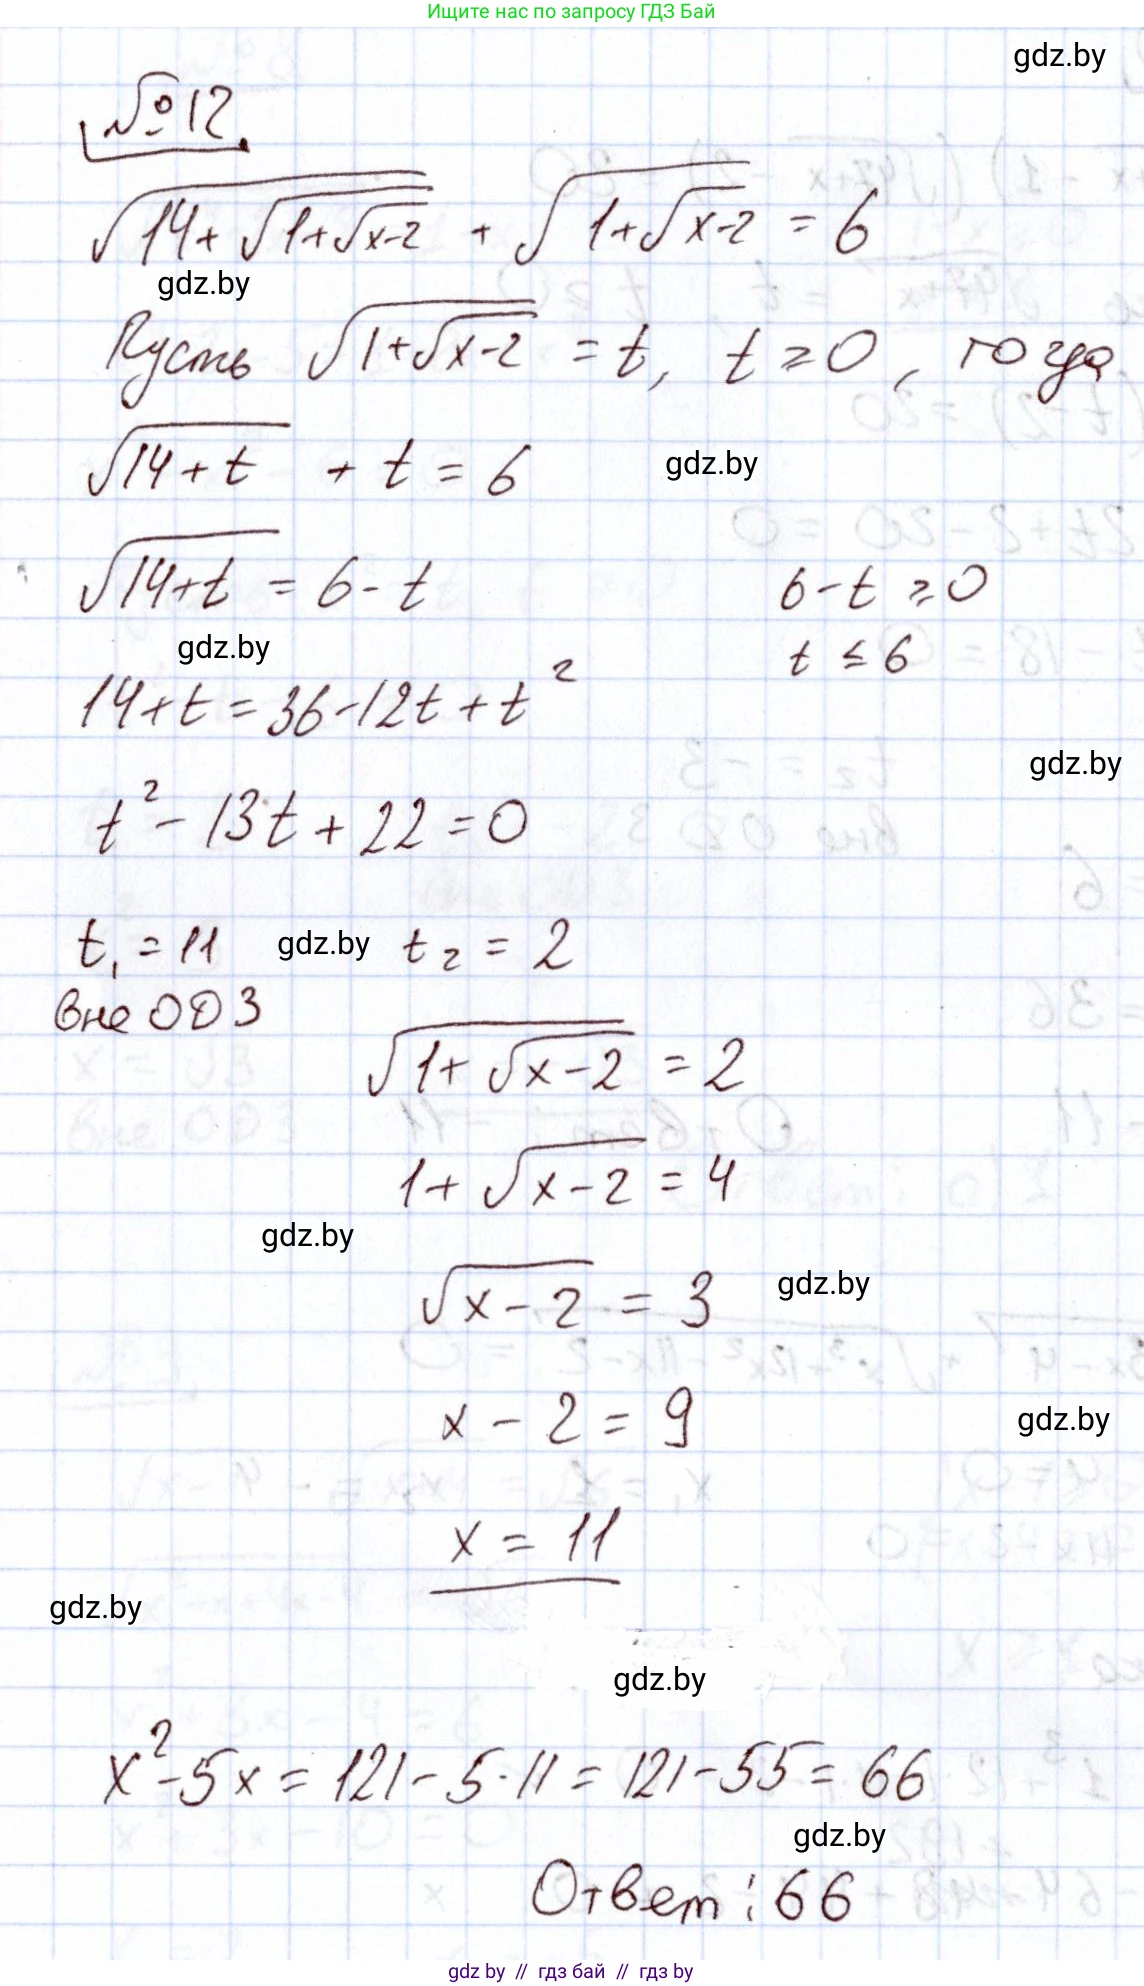 Ищите нас по запросу ГДЗ Бай
gdz.by
№12
√(14+√(1+√(x-2))) + √(1+√(x-2)) = 6
gdz.by
Пусть √(1+√(x-2)) = t, t ≥ 0, тогда
√(14+t) + t = 6
gdz.by
√(14+t) = 6-t
6-t ≥ 0
gdz.by
t ≤ 6
14+t = 36-12t+t²
gdz.by
t² - 13t + 22 = 0
t₁ = 11 gdz.by t₂ = 2
вне ОДЗ
√(1+√(x-2)) = 2
1+√(x-2) = 4
gdz.by
√(x-2) = 3 gdz.by
x - 2 = 9
gdz.by
x = 11
gdz.by
gdz.by
x²-5x = 121-5·11 = 121-55 = 66
gdz.by
Ответ: 66
gdz by // гдз бай // гдз by